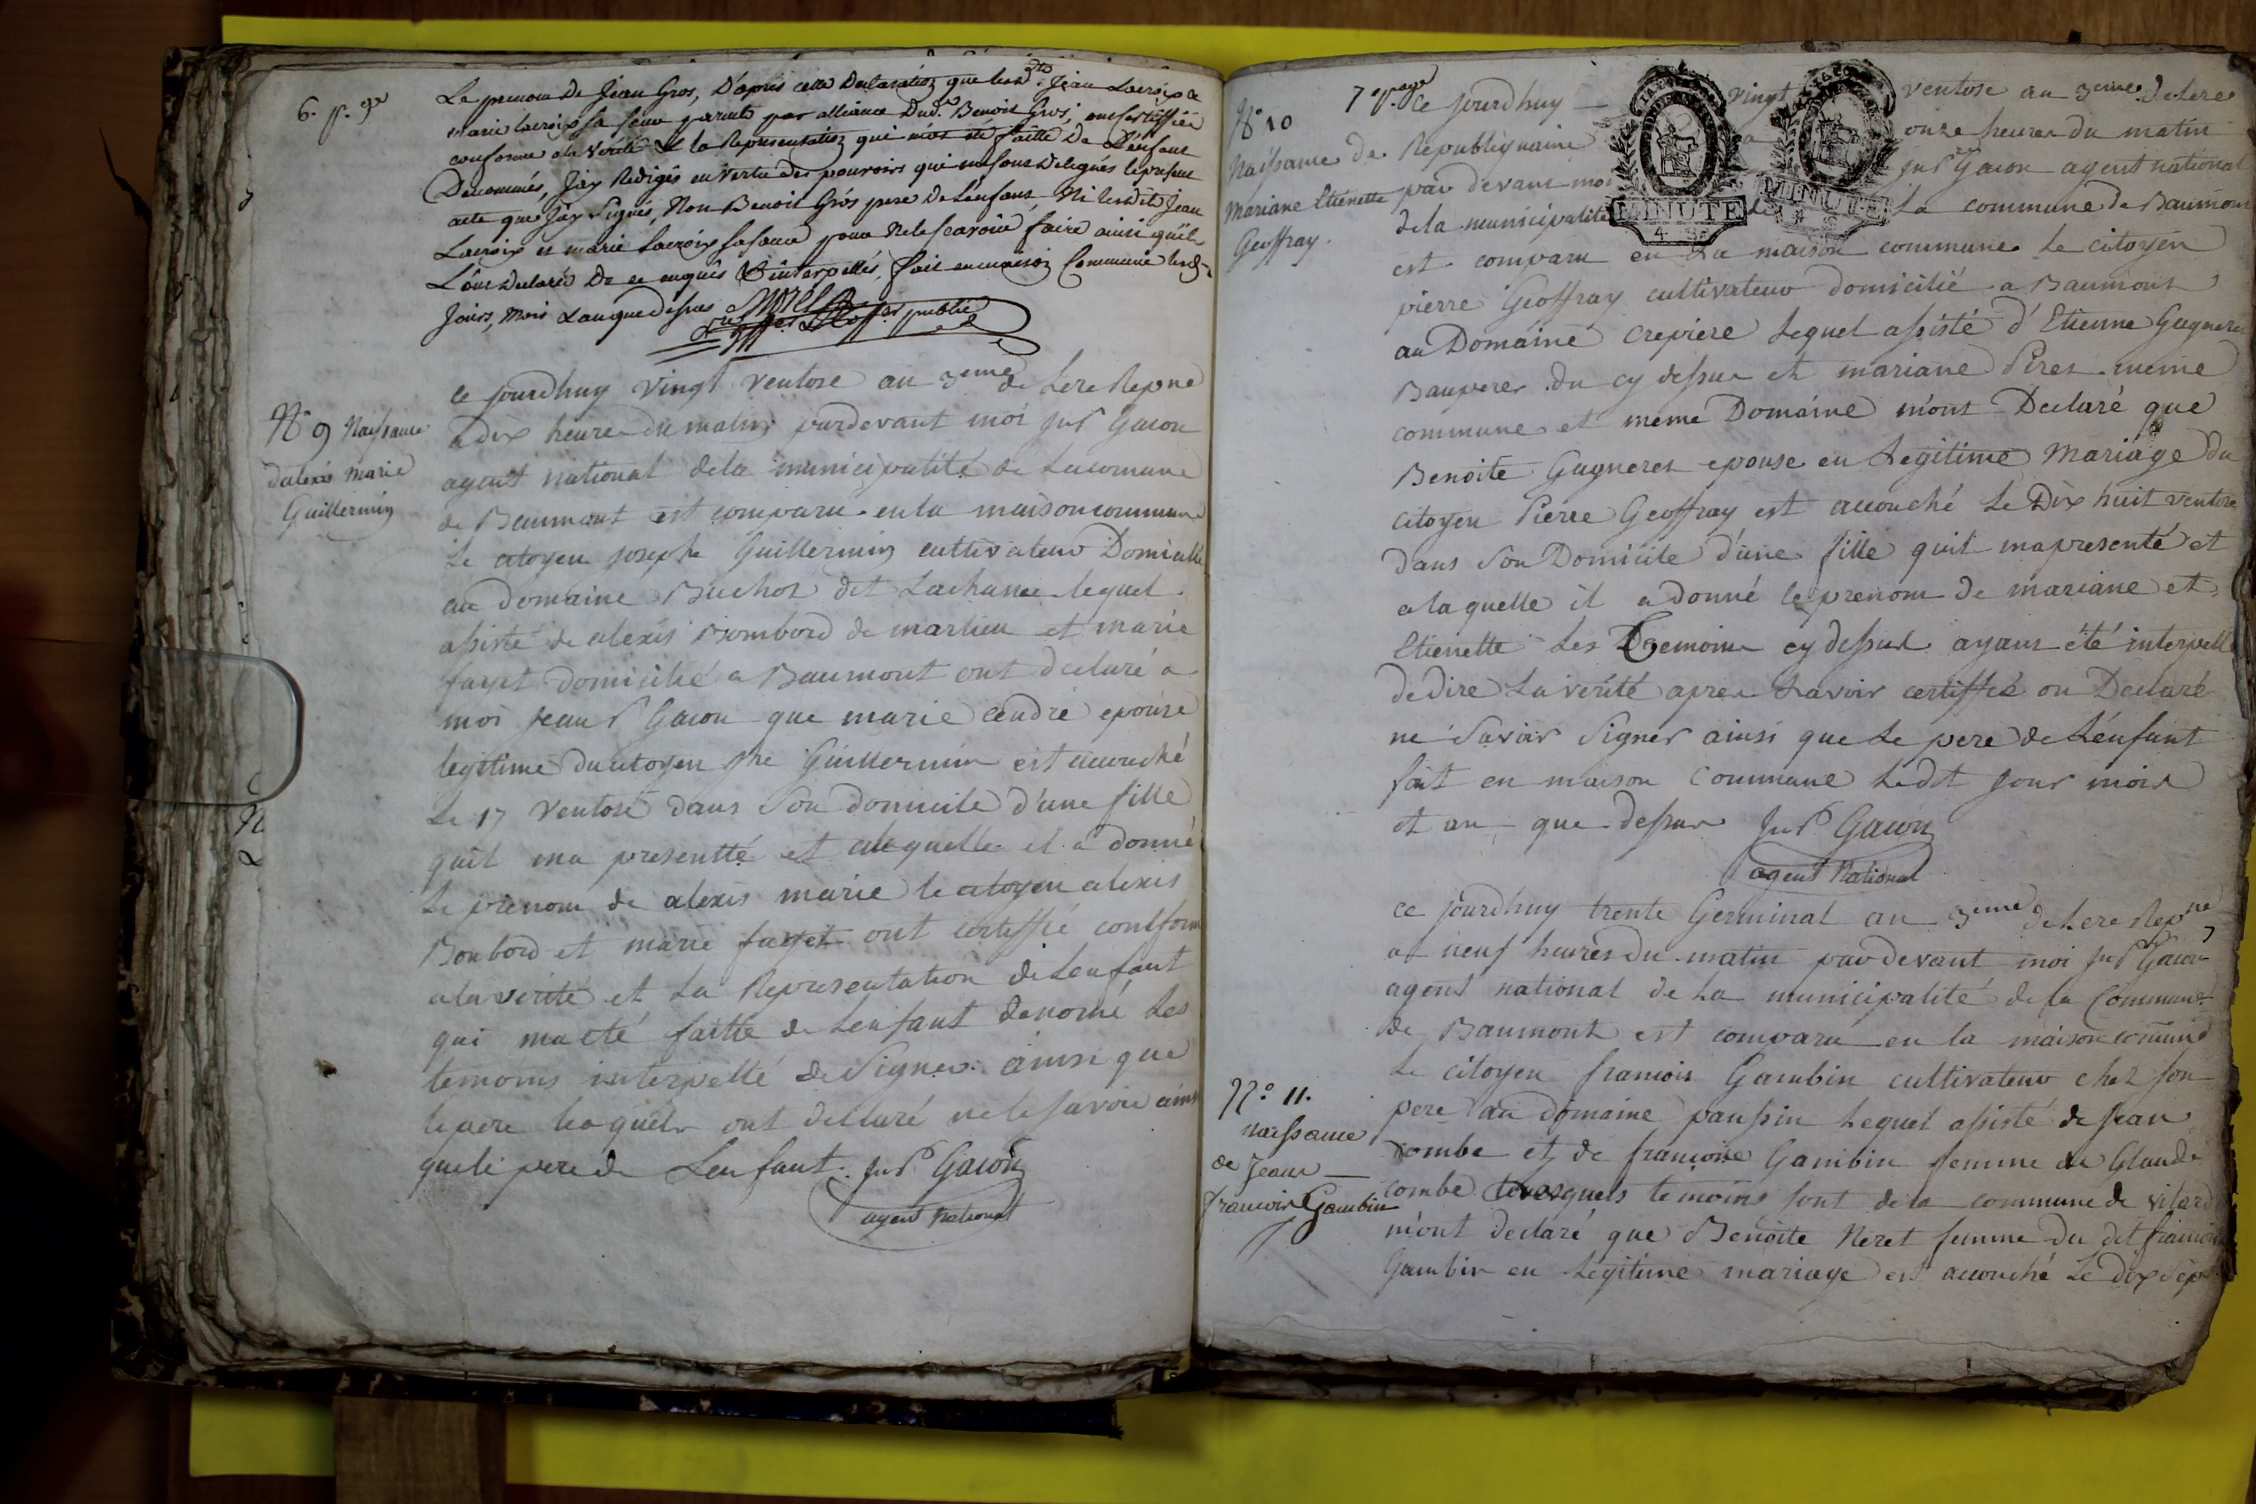 6. p. ge
Le prenom De Jean Gros, D'après cette Declaration que lesdts. Jean Lacroix &
marie lacroix sa seur parents par alliance Dud. Benoit Gros, ont certiffiée
conforme a la Verité & la Representation qui m'as été faitte De L'enfant
Denommés, J'ay Redigés en Vertu des pouvoirs qui me sont Delegués le present
acte que J'ay Signés, Non Benoit Grós pere De L'enfant Ni lesdit Jean
Lacroix et marie Lacroix sa soeur pour Ne le scavoir faire ainsi qu'il
L'ont Declaré De ce enquis & interpellés, fait en maison Commune lesd.
Jours, Mois & an que Dessus
offer public
No 9 Naissance
d'alexis Marie
Guillermin
Ce jourdhuy vingt ventose an 3eme de Lere Repne
a Dix heure du matin pardevant moi Jn P Gacon
agent national dela municipalité de La comune
de Beaumont est comparu en la maison commune
Le citoyen joseph Guillermin cultivateur Domicilié
au domaine Buchot dit Lachanee lequel
assisté de alexis Bombord de marlieu et marie
fayet domicilié a Baumont ont declaré a
moi jean P Gacon que marie cendre epouse
legitime du citoyen Jhe Guillermin est accouché
Le 17 Ventose dans Son domicile d'une fille
quil ma presentté et alaquelle il a donné
Le prenom de alexis marie le citoyen alexis
Bonbord et marie fayet ont certiffié conform
a la verité et La Representation de Lenfant
qui ma eté faitte de Lenfant denomé Les
temoins interpellé de Signer ainsi que
le pere lesquels ont declaré ne le savoir ainsi
que le pere de Lenfant. Jn P Gacon
agent National
7 page
No 10
Naissance de
Mariane Etienette
Geoffray.
Ce jourdhuy vingt ventose an 3eme de Lere
Republiquaine a onze heures du matin
par devant moi Jn P Gacon agent national
de la municipalité de La commune de Baumont
MINUTE
MINUTE
est comparu en La maison commune Le citoyen
pierre Geoffray cultivateur domicilié a Baumont
au Domaine crepiere Lequel assisté d'Etienne Gagneres
Baupere du cy dessus et mariane Peres meme
commune et meme Domaine m'ont Declaré que
Benoite Gagneres epouse en Legitime Mariage du
citoyen Pierre Geoffray est accouché Le Dix huit ventose
dans Son Domicile d'une fille quil ma presenté et
a la quelle il a donné le prenom de mariane et
Etienette Les Temoins cy dessus ayant été interpellé
de dire La verité apres Lavoir certiffié on Declaré
ne Savoir Signer ainsi que Le pere de L'enfant
fait en maison Commune Ledt jour mois
et an que dessus Jn P Gacon
agent National
ce jourdhuy trente Germinal an 3eme de Lere Repne
a neuf heures du matin par devant moi Jn P Gacon
agent national de La municipalité de la Commune
de Baumont est comparu en la maison comune
No 11.
naissance
de Jean
francois Gambin
Le citoyen francois Gambin cultivateur chez son
pere au domaine paussin Lequel assisté de jean
combe et de francoise Gambin femme de Glaude
combe Lesquels temoins sont de la commune de Vilard
m'ont declaré que Benoite Neret femme du dit francois
Gambin en Legitime mariage est accouché Le dix sept